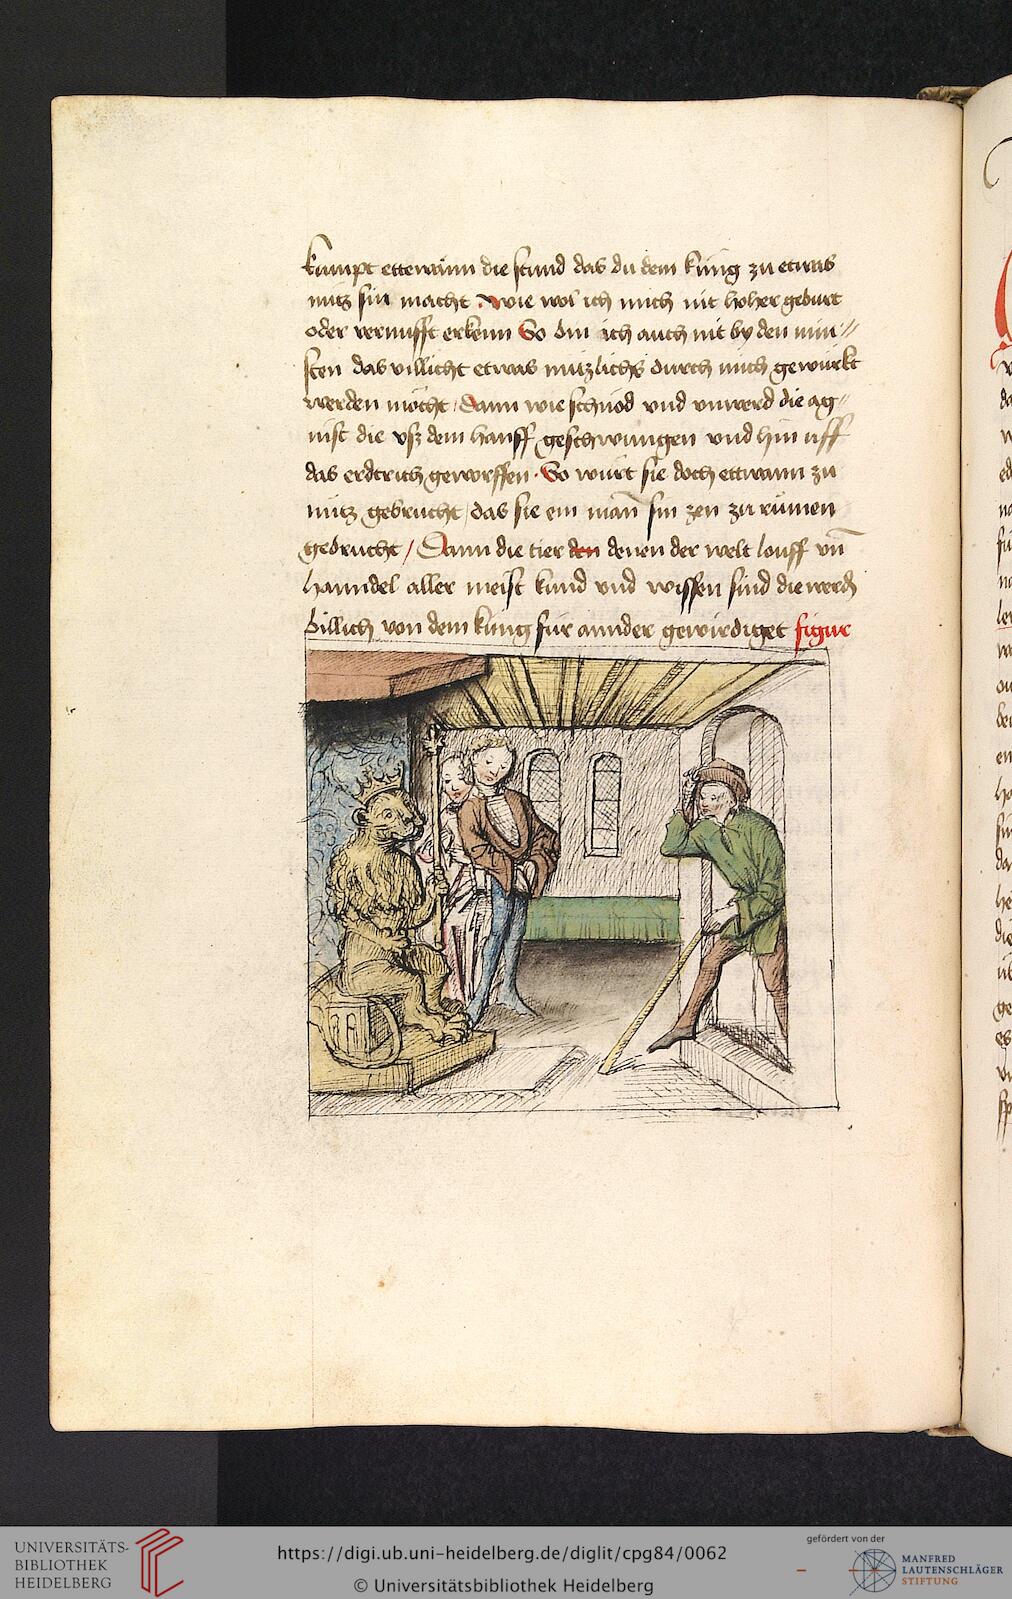 kumpt ettwann die stund das du dem kung zu etwas
nutz sin macht . wie wol ich mich nit hoher geburt
oder vernufft erkenn So bin ich auch nit by den min//
sten das villicht etwas nutzlichs durch mich gewurkt
werden möcht / Dann wie schnöd vnd vnwerd die ag//
nist die vsz dem hanff geschwungen vnd hin uff
das erdtrich geworffen . So wurt sie doch ettwann zu
nutz gebrucht / das sie ein man sin zen zu rumen
gebrucht / Dann die tier den denen der welt louff vn̄
hanndel aller meist kund vnd wissen sind die werd
billich von dem kung fur annder gewirdiget figur
UNIVERSITÄTS-
BIBLIOTHEK
HEIDELBERG
https://digi.ub.uni-heidelberg.de/diglit/cpg84/0062
© Universitätsbibliothek Heidelberg
gefördert von der
MANFRED
LAUTENSCHLÄGER
STIFTUNG